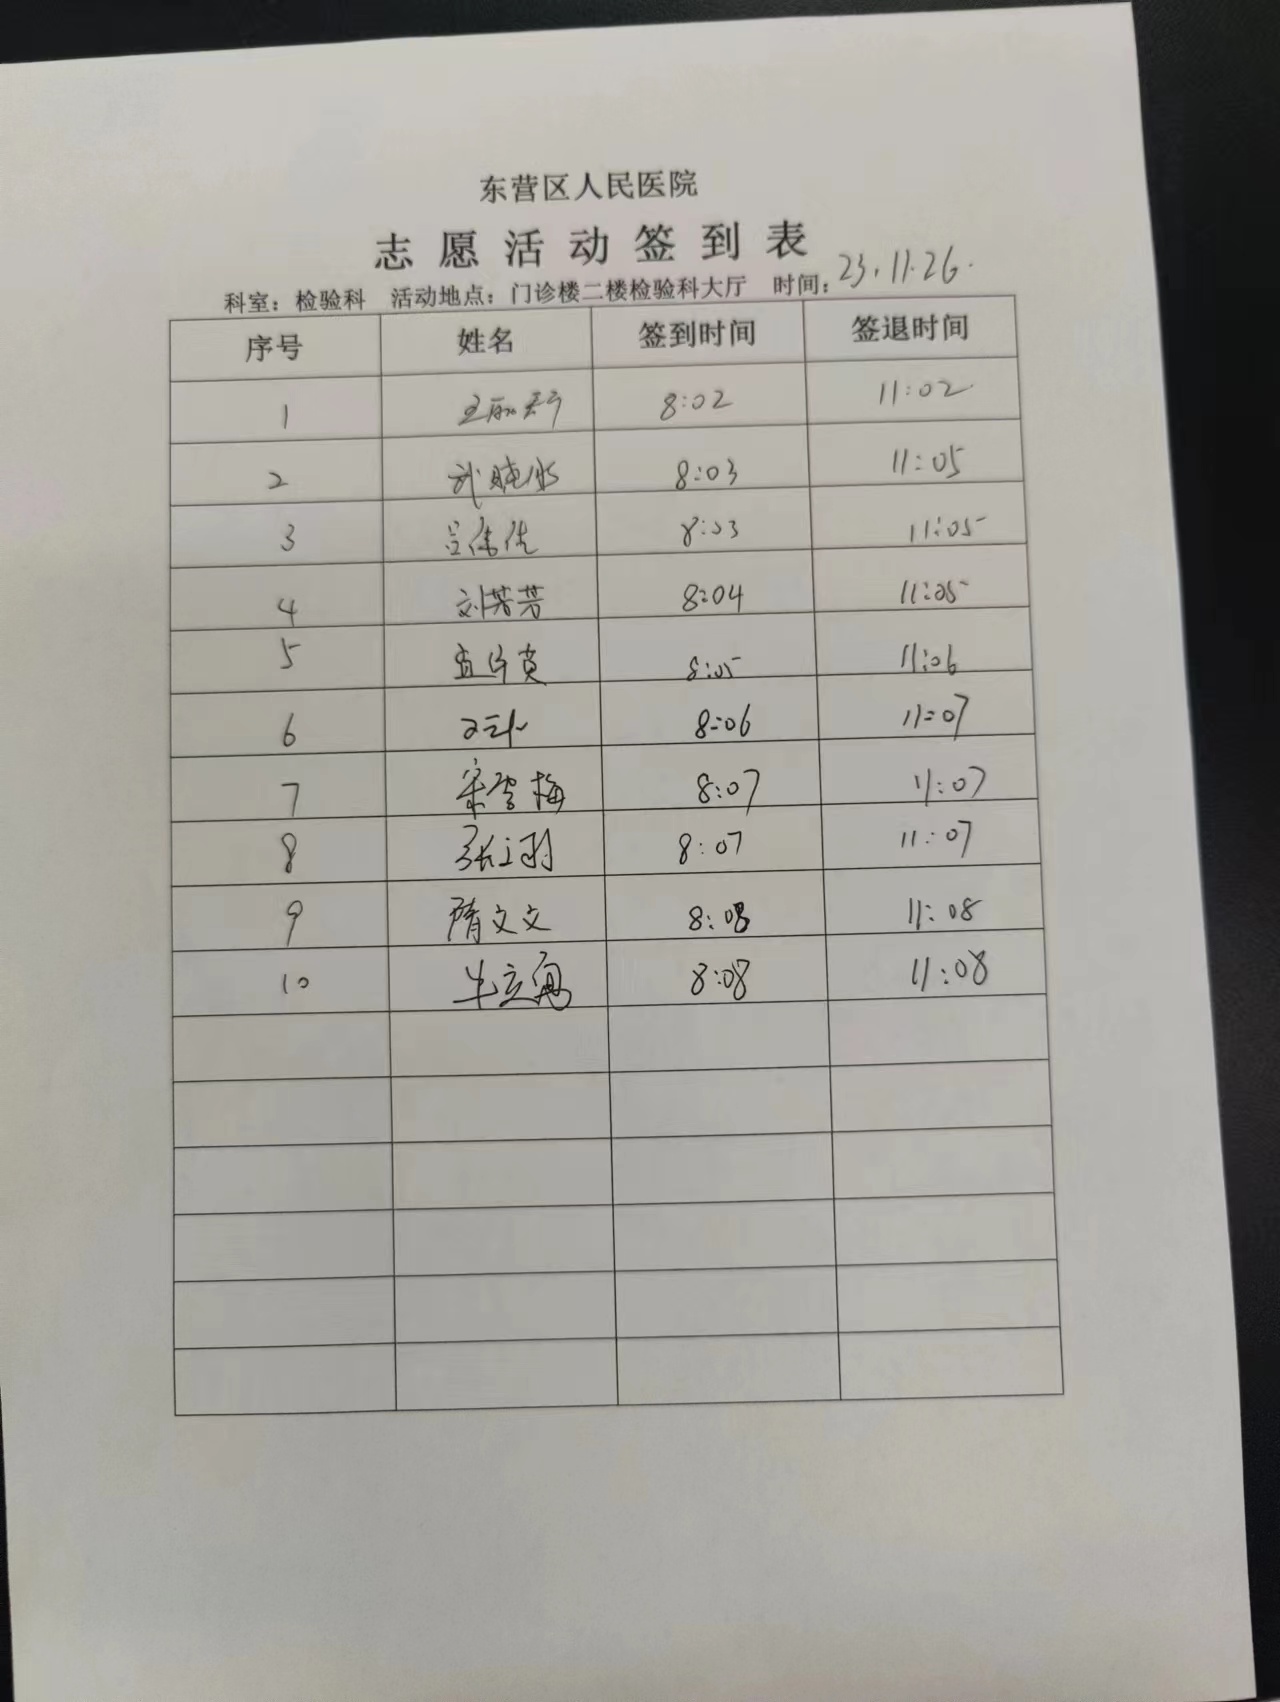 东营区人民医院
志愿活动签到表
科室：检验科 活动地点：门诊楼二楼检验科大厅 时间：23.11.26.
序号 姓名 签到时间 签退时间
1 8:02 11:02
2 武晓 8:03 11:05
3 8:03 11:05
4 刘芳芳 8:04 11:05
5 8:05 11:06
6 8:06 11:07
7 宋雪梅 8:07 11:07
8 张立羽 8:07 11:07
9 隋文文 8:08 11:08
10 牛立 8:08 11:08